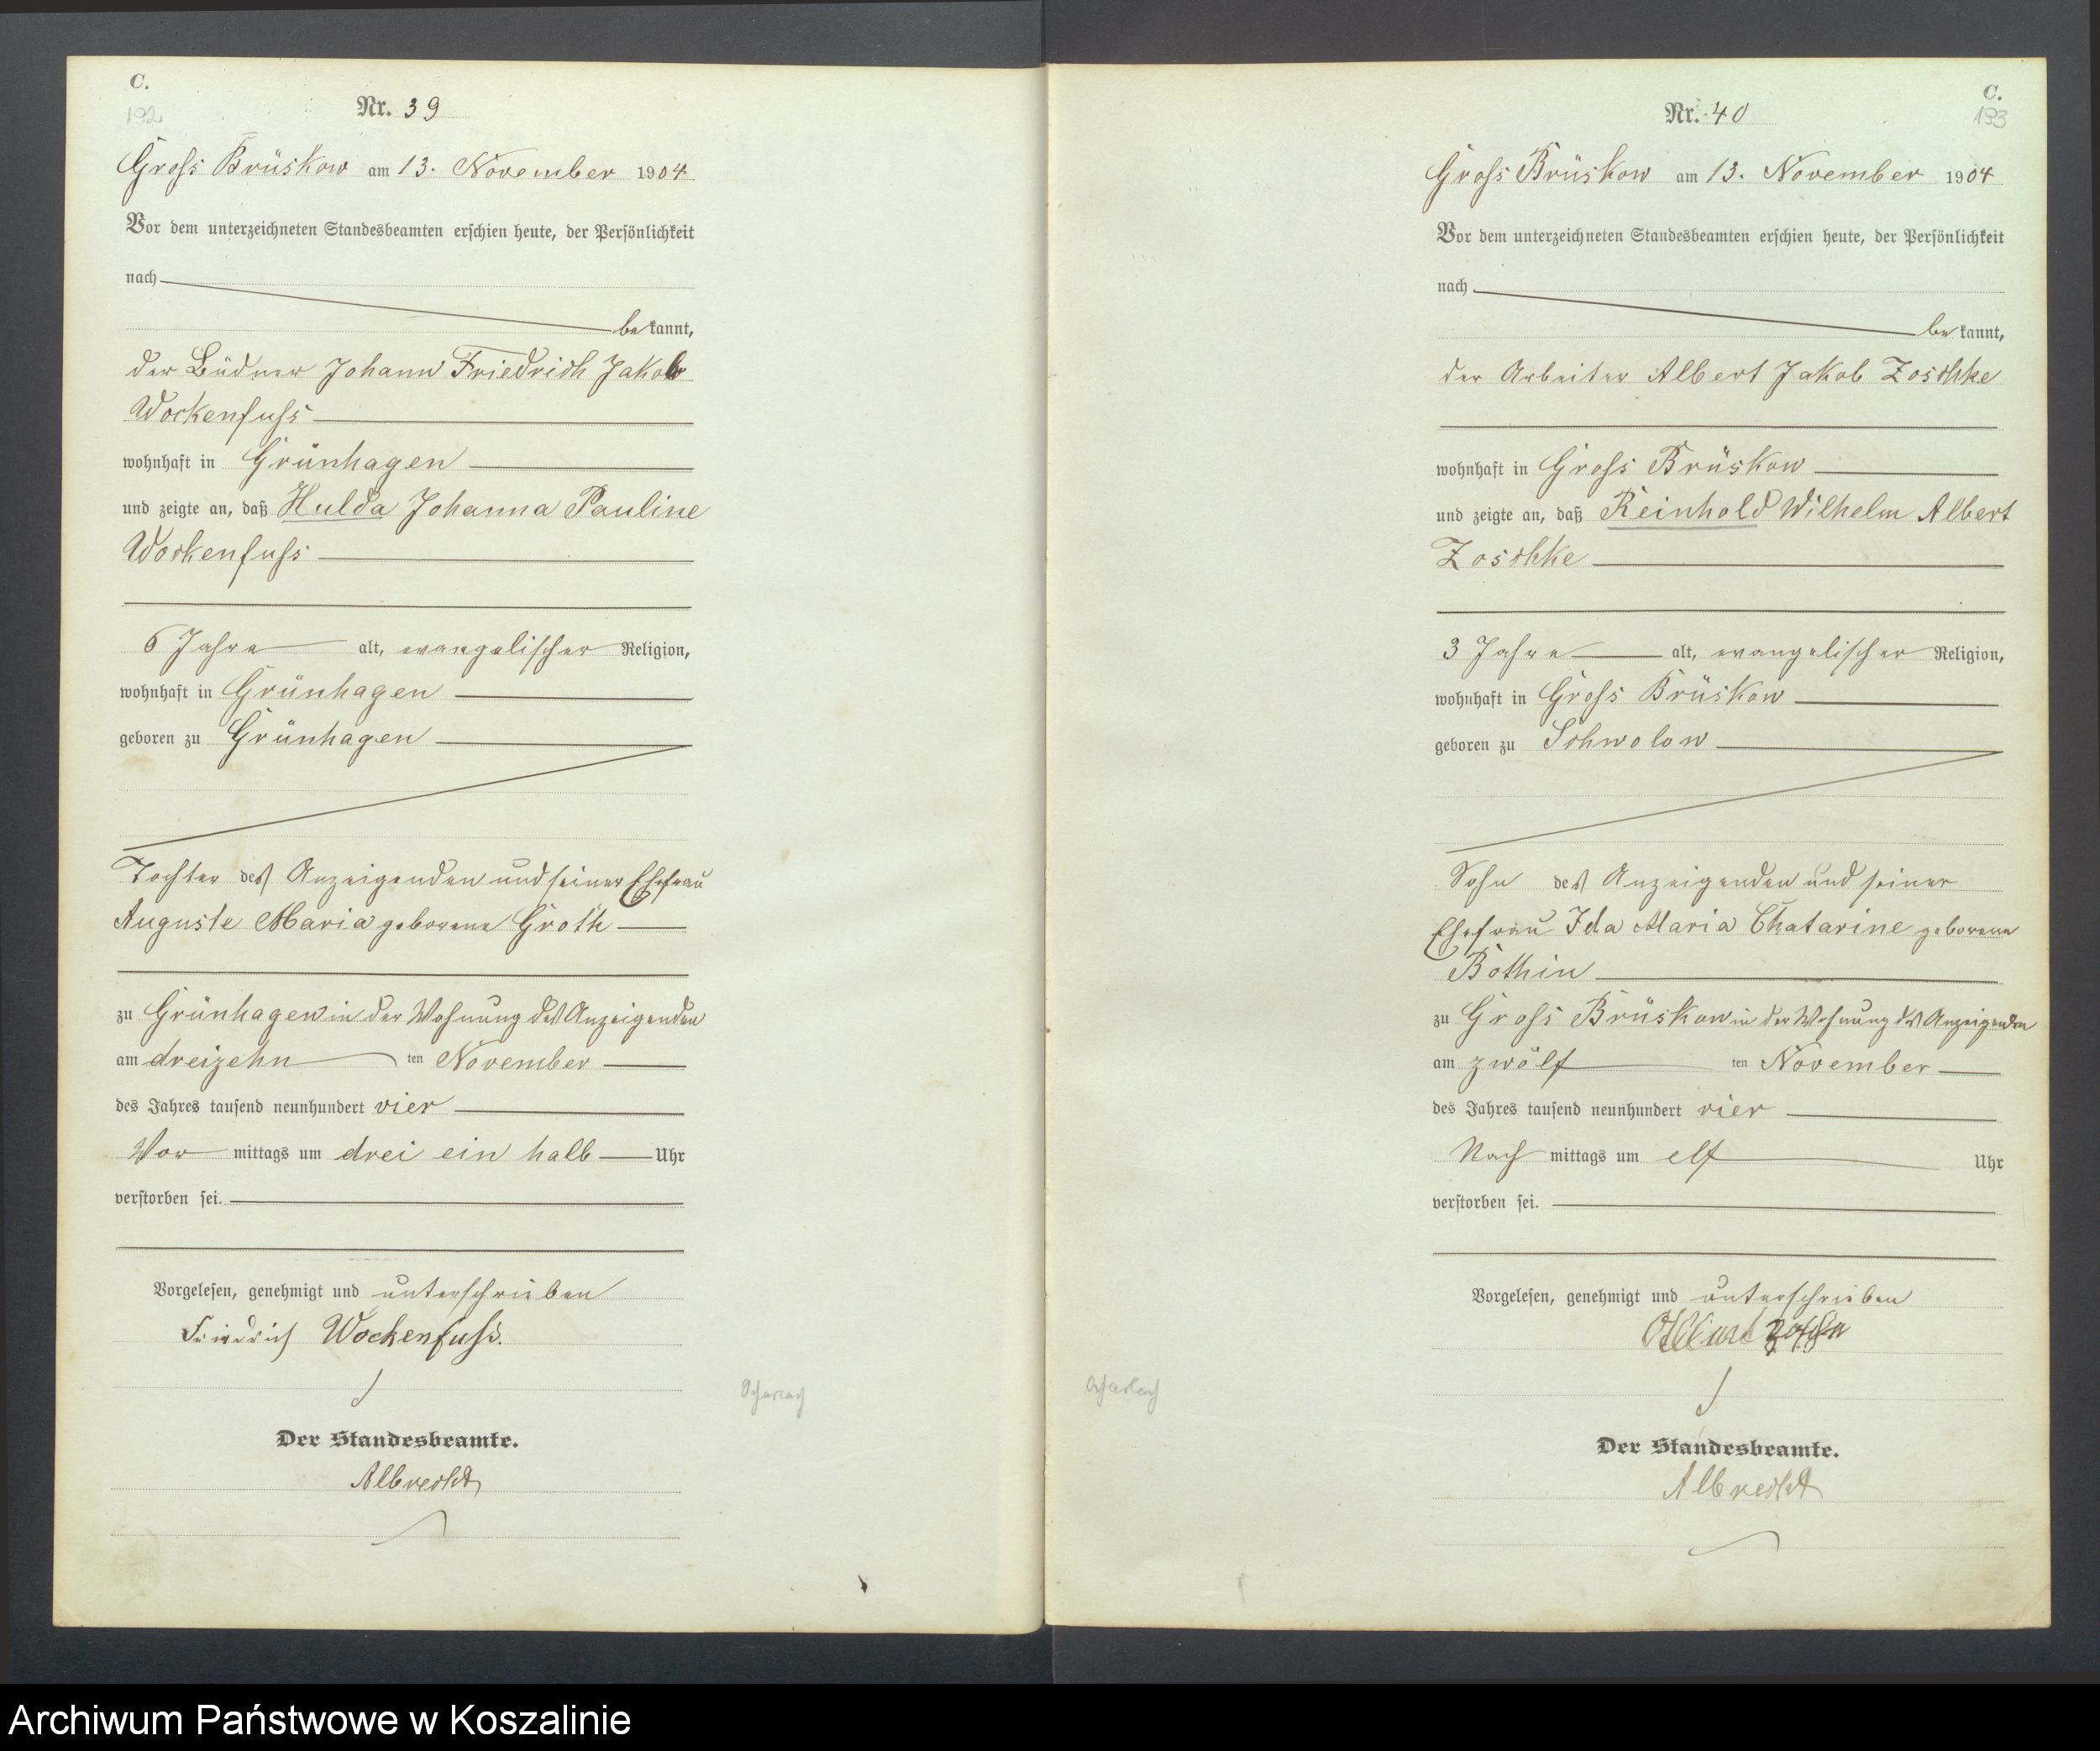 C.
192
Nr. 39
Gross Brüskow am 13. November 1904
Vor dem unterzeichneten Standesbeamten erschien heute, der Persönlichkeit
nach
bekannt,
der Büdner Johann Friedrich Jakob
Wockenfuss
wohnhaft in Grünhagen
und zeigte an, daß Hulda Johanna Pauline
Wockenfuss
6 Jahre alt, evangelischer Religion,
wohnhaft in Grünhagen
geboren zu Grünhagen
Tochter des Anzeigenden und seiner Ehefrau
Auguste Maria geborene Groth
zu Grünhagen in der Wohnung des Anzeigenden
am dreizehn ten November
des Jahres tausend neunhundert vier
Vor mittags um drei ein halb Uhr
verstorben sei.
Vorgelesen, genehmigt und unterschrieben
Friedrich Wockenfuss.
Scharlach
Der Standesbeamte.
Albrecht
C.
193
Nr. 40
Gross Brüskow am 13. November 1904
Vor dem unterzeichneten Standesbeamten erschien heute, der Persönlichkeit
nach
bekannt,
der Arbeiter Albert Jakob Zoschke
wohnhaft in Gross Brüskow
und zeigte an, daß Reinhold Wilhelm Albert
Zoschke
3 Jahre alt, evangelischer Religion,
wohnhaft in Gross Brüskow
geboren zu Schwolow
Sohn des Anzeigenden und seiner
Ehefrau Ida Maria Chatarine geborene
Bothin
zu Gross Brüskow in der Wohnung des Anzeigenden
am zwölf ten November
des Jahres tausend neunhundert vier
Nach mittags um elf Uhr
verstorben sei.
Vorgelesen, genehmigt und unterschrieben
Albert
Scharlach
Der Standesbeamte.
Albrecht
Archiwum Państwowe w Koszalinie